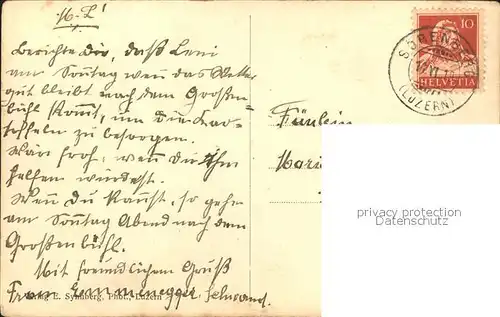 M. L!
Berichte Dir, daß Leni
am Sonntag wen das Wetter
gut bleibt nach dem Großen-
bühl kommt, um die Kar-
toffeln zu besorgen.
Wär froh, wen du Ihm
helfen würdest.
Wen Du kannst, so gehe
am Sonntag Abend nach dem
Großenbühl.
Mit freundlichem Gruß
Frau Emmenegger
Verlag E. Synnberg, Phot., Luzern
Fräulein
Mari
10
HELVETIA
SÖRENBERG
(LUZERN)
privacy protection
Datenschutz